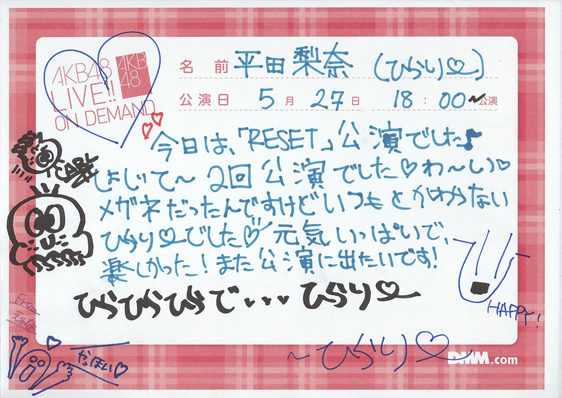 AKB48
LIVE!!
ON DEMAND
AKB
48
名前 平田梨奈 (ひらり♡)
公演日 5月27日 18:00~公演
今日は、「RESET」公演でした♪
2回公演でした♡わ〜い♡
メガネだったんですけどいつもとかわらない
ひらり♡でした♡元気いっぱいで、
楽しかった!また公演に出たいです!
ひらひらひらで...ひらり♡
HAPPY!
やっほい♡
〜ひらり♡
DMM.com